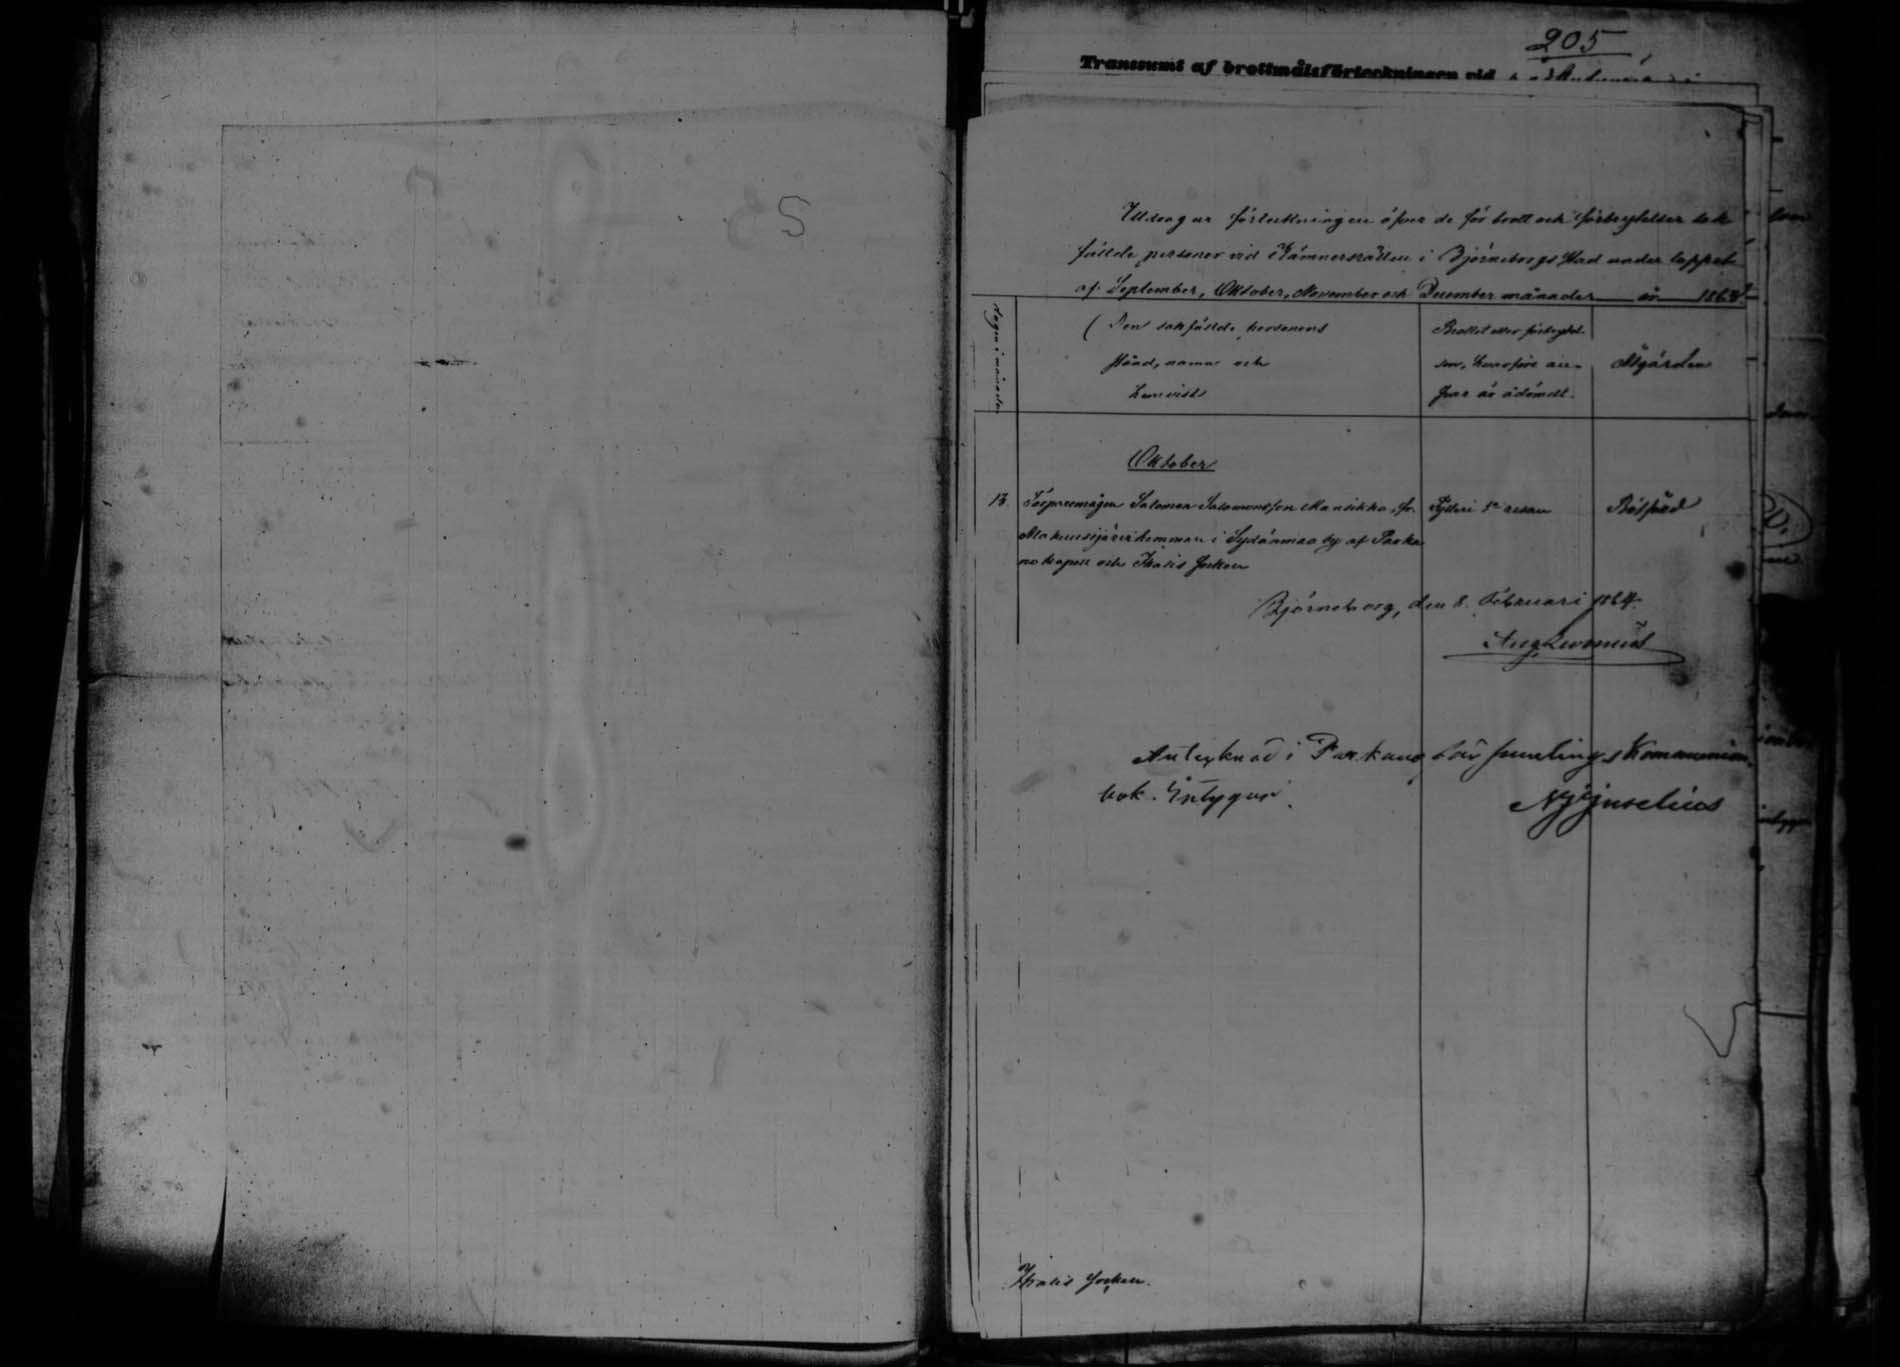 205
Transsumt af brottmålsförteckningen vid
Utdrag ur förteckningen öfver de för brott och förbrytelser sak
fällde personer vid Kämnersrätten i Björneborgs stad under loppet
af September, Oktober, November och December månader år 1863
Dagen i månaden
Den sakfällde personens
stånd, namn och
hemvist
Brottet eller förbrytel-
sen, hvarföre an-
svar är ådömdt.
Åtgärden
Oktober
13. Torparemågen Salomon Salomonsson Mansikka, fr.
hemman i Sydänmaa by af Parka
no kapell och Ikalis socken
Fylleri 1a resan
Botfäld
Björneborg, den 8. Februari 1864.
Antecknad i Parkano församlings Kommunion-
bok. Intygar
Ikalis socken.